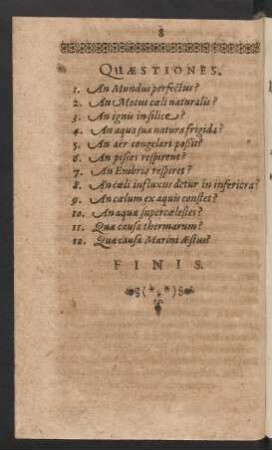 8
QUÆSTIONES.
1. An Mundus perfectus?
2. An Motus cœli naturalis?
3. An ignis in silice?
4. An aqua sua natura frigida?
5. An aër congelari possit?
6. An pisces respirent?
7. An Embrio respiret?
8. An cœli influxus detur in inferiora?
9. An cælum ex aquis constet?
10. An aquæ supercælestes?
11. Quæ causa thermarum?
12. Quæ causa Marini Æstus?
FINIS.